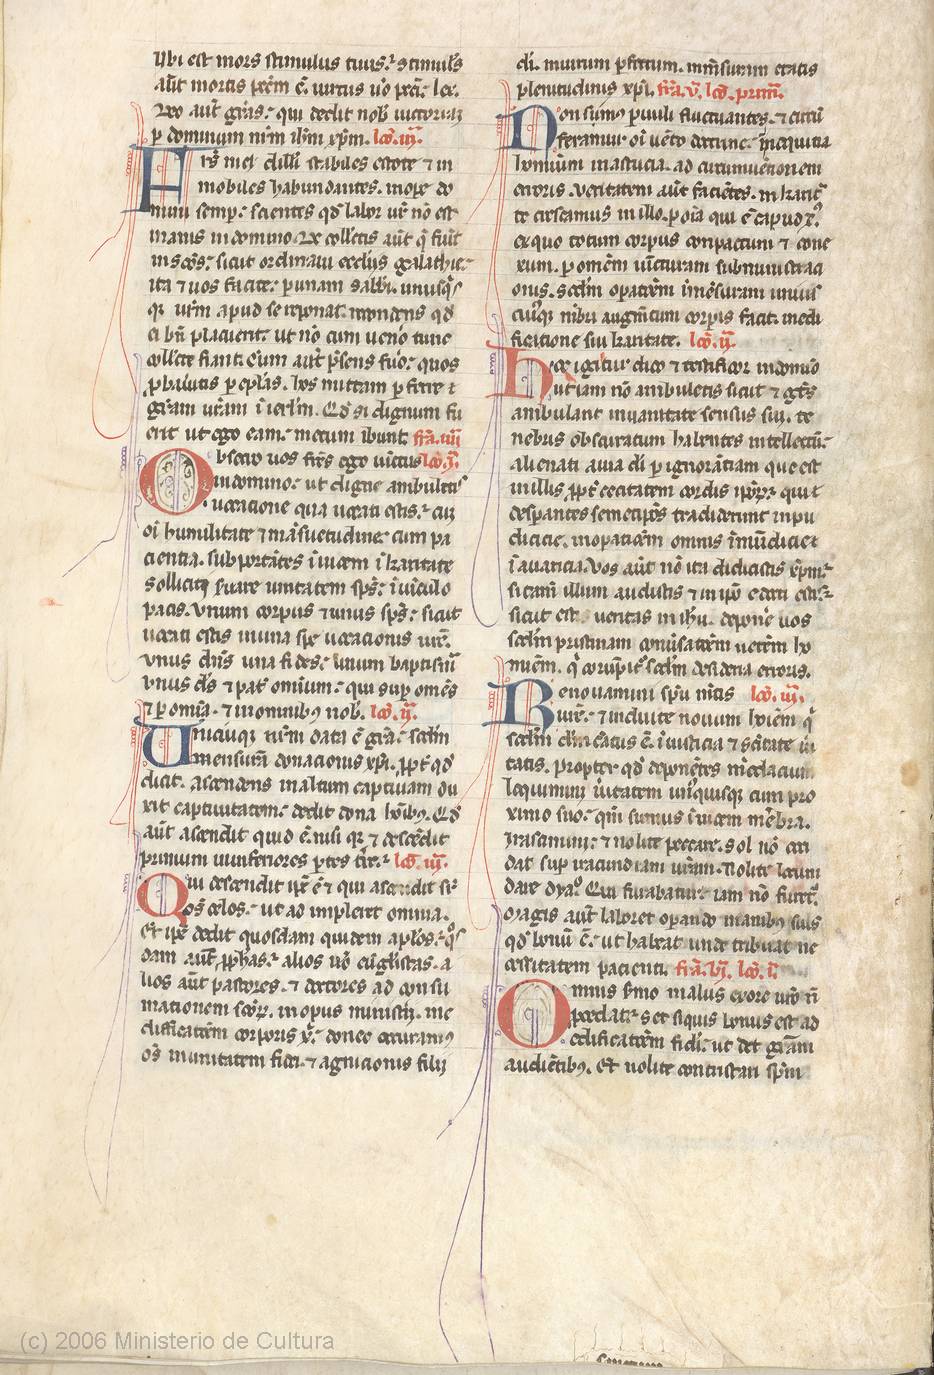 Ubi est mors stimulus tuus? stimul᷒
aūt mortis pcc̄m ē. uirtus uō pccī: lex.
Deo aūt grās: qui dedit nob̄ uictoriā
p dominum nr̄m ih̄m xp̄m. lc̄o. iii.
Frs̄ mei dilc̄i stabiles estote ⁊ in
mobiles habundantes. in ope do
mini semp: scientes qd̄ labor ur̄ nō est
inanis in domino. De coll̄ctis aūt q̄ fiūt
in sc̄os: sicut ordinaui ecclijs galathie:
ita ⁊ uos facite: p unam sabb̄i. unusq̄s
qꝫ ur̄m apud se reponat. recondens qd̄
ei bn̄ placuerit. ut nō cum uen̄o tunc
coll̄cte fiant. Cum aūt p̄sens fūo: quos
p̄baūitis p ep̄las. hos mittam p ferre
gr̄am ur̄am ī ierl̄m. Qd̄ si dignum fu
erit ut ego eam: mecum ibunt. fr̄a. iiii
Obsecro uos fr̄es ego uīctus lc̄o. i.
in domino: ut digne ambuletis
uocatione qua uocati estis: cū
oī humilitate ⁊ māsuetudine: cum pa
cientia. subportātes īuicem ī karitate
solliciti ẜuare unitatem sp̄s: ī uīculo
pacis. Vnum corpus ⁊ unus sp̄s: sicut
uocati estis in una spe uocationis ur̄e.
Vnus dn̄s una fides: unum baptism̄
Vnus d̄s ⁊ pat̄ omnium: qui sup om̄s
⁊ p omīa. ⁊ in omnibꝰ nob̄. lc̄o. ii.
Unicuiqꝫ nr̄m data ē grā: sc̄dm
mensurā donationis xp̄i. ꝓpt̄ qd̄
dicit. ascendens in altum captiuam du
xit captiuitatem: dedit dona hōibꝰ. Qd̄
aūt ascendit quid ē. nisi qꝛ ⁊ descēdit
primum in inferiores ptes tr̄e: lc̄o. iii.
Qui descendit ip̄e ē ⁊ qui ascendit sr̄
os̄ celos: ut adimpleret omnia.
Et ip̄e dedit quosdam quidem ap̄los: q̄s
dam aūt ꝓphas: alios uō eūglīstas. a
lios aūt pastores. ⁊ doctores ad consu
mationem sc̄oꝝ. in opus ministīj. in e
dificatōm corporis x̄: donec occurramꝰ
os̄ in unitatem fidei. ⁊ agnicionis filij
di. in uirum pfectum. in mēsuram etatis
plenitudinis xp̄i. fr̄a. v. lc̄o. prim̄.
Non simus puuli fluctuantes. ⁊ circū
feramur oī uēto doctrine. in nequitia
hominum in astucia. ad circumuētionem
erroris. Veritatem aūt faciētes. in karita
te crescamus in illo. p oīa qui ē caput x̄:
ex quo totum corpus compactum ⁊ cone
xum. p omēm iūcturam subministrati
onis. sc̄dm opatōem ī mēsuram unius
cuiꝰqꝫ mēbri augm̄tum corpis facit. in edi
ficatione sui karitate. lc̄o. ii.
Hoc igitur dico ⁊ testificor in domīo
ut iam nō ambuletis sicut ⁊ gēts
ambulant in uanitate sensus sui. te
nebris obscuratum habentes intellectū:
alienati a uia dī p ignorātiam que est
in illis ꝓpt̄ cecitatem cordis ip̄oꝝ: qui
desperantes semetip̄os tradiderunt inpu
dicicie. in opatōem omnis īmūdicie
ī auaricia. Vos aūt nō ita didicistis xp̄m:
si tam̄ illum audistis ⁊ in ip̄o edocti estis:
sicut est ueritas in ih̄u. depoñe uos
sc̄dm pristinam cōuersatōem ueterem ho
minēm. q̄ corrūpit̄ sc̄dm desideria erroris.
Renouamini sp̄u mētis lc̄o. iii.
uūre: ⁊ induite nouum hoīem q̄
sc̄dm dm̄ creatus ē. ī iusticia ⁊ sc̄itate ueri
tatis. Propter qd̄ deponētes mēdacium
loquimini ūitatem unꝰquisqꝫ cum pro
ximo suo: qm̄ sumus īuicem mēbra.
Irascimini: ⁊ nolite peccare. Sol nō occi
dat sup iracundiam ur̄am. Nolite locum
dare dyab̄o. Qui furabatur: iam nō furet̄.
Magis aūt laboret operando manibꝰ suis
qd̄ bonū ē: ut habeat unde tribuat ne
cessitatem pacienti. fr̄a. vi. lc̄o. i.
Omnis ẜmo malus ex ore ur̄o n̄
procedat: set si quis bonus est ad
edificatōem fidei: ut det grām
audiētibꝰ. Et nolite contristari sp̄m
sanctum
(c) 2006 Ministerio de Cultura